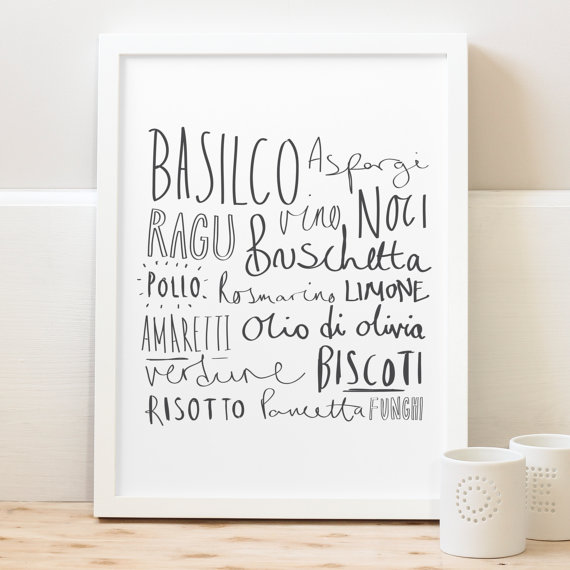 BASILCO Aspargi
RAGU vino NOCI
Bruschetta
POLLO Rosmarino LIMONE
AMARETTI Olio di olivia
verdure BISCOTI
RISOTTO Pancetta FUNGHI
C E